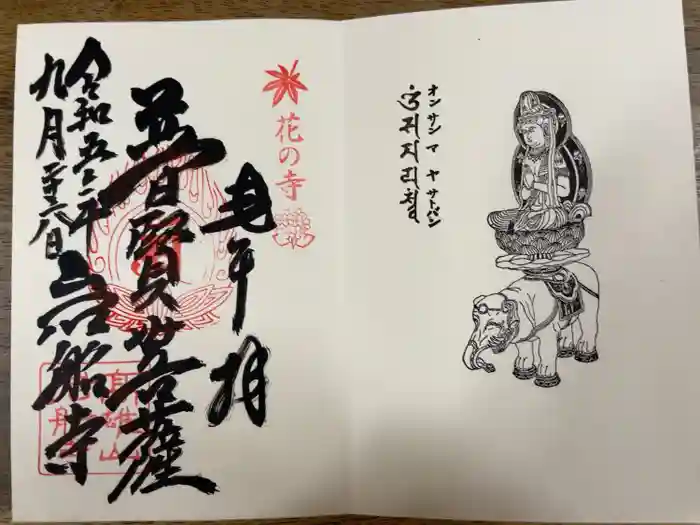 オン サン マ ヤ サトバン
花の寺
年 拝
普賢菩薩
令和五年
九月二十六日
岩船寺
高雄山